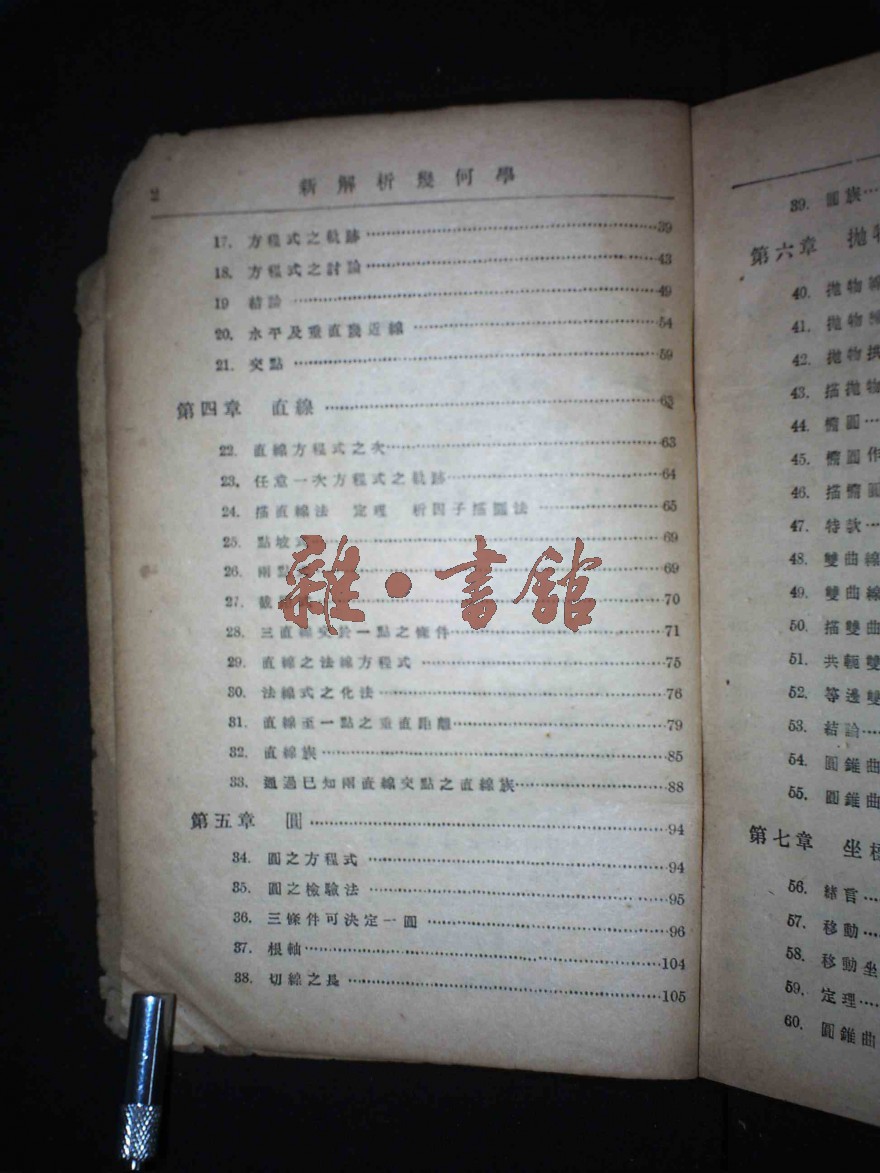 2
新解析幾何學
17. 方程式之軌跡 39
18. 方程式之討論 43
19 結論 49
20. 水平及垂直幾近線 54
21. 交點 59
第四章 直線 63
22. 直線方程式之次 63
23. 任意一次方程式之軌跡 64
24. 描直線法 定理 析因子描圖法 65
25. 點坡式 69
26. 兩點 69
27. 截 70
28. 三直線交於一點之條件 71
29. 直線之法線方程式 75
30. 法線式之化法 76
31. 直線至一點之垂直距離 79
32. 直線族 85
33. 通過已知兩直線交點之直線族 88
第五章 圓 94
34. 圓之方程式 94
35. 圓之檢驗法 95
36. 三條件可決定一圓 96
37. 根軸 104
38. 切線之長 105
雜·書館
39. 圓族
第六章 拋物
40. 拋物線
41. 拋物線
42. 拋物拱
43. 描拋物
44. 橢圓
45. 橢圓作
46. 描橢圓
47. 特款
48. 雙曲線
49. 雙曲線
50. 描雙曲
51. 共軛雙
52. 等邊雙
53. 結論
54. 圓錐曲
55. 圓錐曲
第七章 坐標
56. 緒言
57. 移動
58. 移動坐
59. 定理
60. 圓錐曲